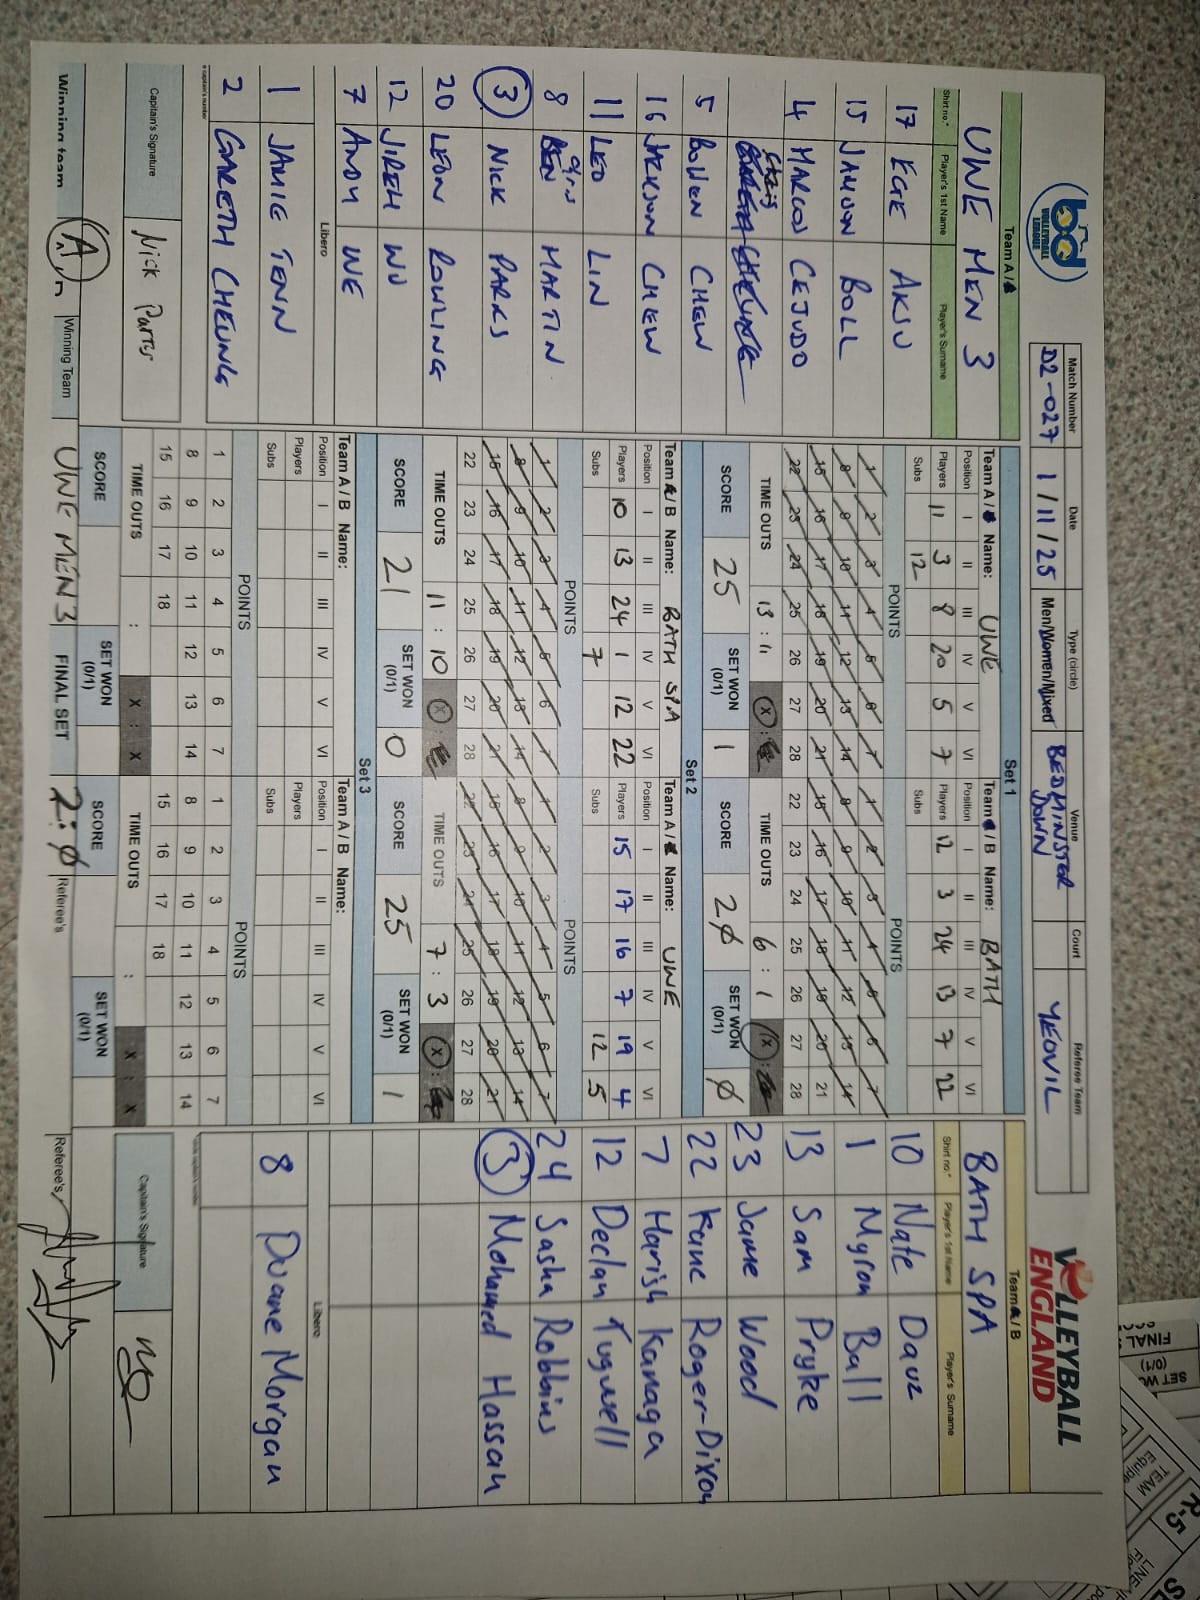 VOLLEYBALL LEAGUE
Match Number Date Type (circle) Venue Court Referee Team
D2-027 1/11/25 Men/Women/Mixed BEDMINSTER DOWN YEOVIL
VOLLEYBALL ENGLAND
Team A
UWE MEN 3
Shirt no.* Player's 1st Name Player's Surname
17 EGE AKSU
15 JAMON BOLL
4 MARCOS CEJUDO
5 BOWEN CHEW
16 JACKSON CHEW
11 LEO LIN
8 MARTIN
3 NICK PARKS
20 LEON ROWLING
12 JIREH WU
7 ANDY WE
Libero
1 JAMIE TENN
2 GARETH CHEUNG
Captain's Signature
Set 1
Team A Name: UWE
Position I II III IV V VI
Players 11 3 8 20 5 7
Subs 12
POINTS
1 2 3 4 5 6 7
8 9 10 11 12 13 14
15 16 17 18 19 20 21
22 23 24 25 26 27 28
TIME OUTS 13 : 11 X :
SCORE 25 SET WON (0/1) 1
Team B Name: BATH
Position I II III IV V VI
Players 12 3 24 13 7 22
Subs
POINTS
1 2 3 4 5 6 7
8 9 10 11 12 13 14
15 16 17 18 19 20 21
22 23 24 25 26 27 28
TIME OUTS 6 : 1 X :
SCORE 20 SET WON (0/1) 0
Set 2
Team B Name: BATH SPA
Position I II III IV V VI
Players 10 13 24 1 12 22
Subs 7
POINTS
1 2 3 4 5 6 7
8 9 10 11 12 13 14
15 16 17 18 19 20 21
22 23 24 25 26 27 28
TIME OUTS 11 : 10 X :
SCORE 21 SET WON (0/1) 0
Team A Name: UWE
Position I II III IV V VI
Players 15 17 16 7 19 4
Subs 12 5
POINTS
1 2 3 4 5 6 7
8 9 10 11 12 13 14
15 16 17 18 19 20 21
22 23 24 25 26 27 28
TIME OUTS 7 : 3 X :
SCORE 25 SET WON (0/1) 1
Set 3
Team A / B Name:
Position I II III IV V VI
Players
Subs
POINTS
1 2 3 4 5 6 7
8 9 10 11 12 13 14
15 16 17 18
TIME OUTS : X : X
SCORE SET WON (0/1)
Team A / B Name:
Position I II III IV V VI
Players
Subs
POINTS
1 2 3 4 5 6 7
8 9 10 11 12 13 14
15 16 17 18
TIME OUTS : X : X
SCORE SET WON (0/1)
Team B
BATH SPA
Shirt no.* Player's 1st Name Player's Surname
10 Nate Dauz
1 Myron Ball
13 Sam Pryke
23 Jamie Wood
22 Kane Roger-Dixon
7 Harish Kanaga
12 Declan Tugwell
24 Sasha Robbins
3 Mohamed Hassan
Libero
8 Duane Morgan
Captain's Signature
Winning team A Winning Team UWE MEN 3 FINAL SET SCORE 2:0 Referee's Referee's
FINAL
SET WO
(0/1)
TEAM
Equip
R-5